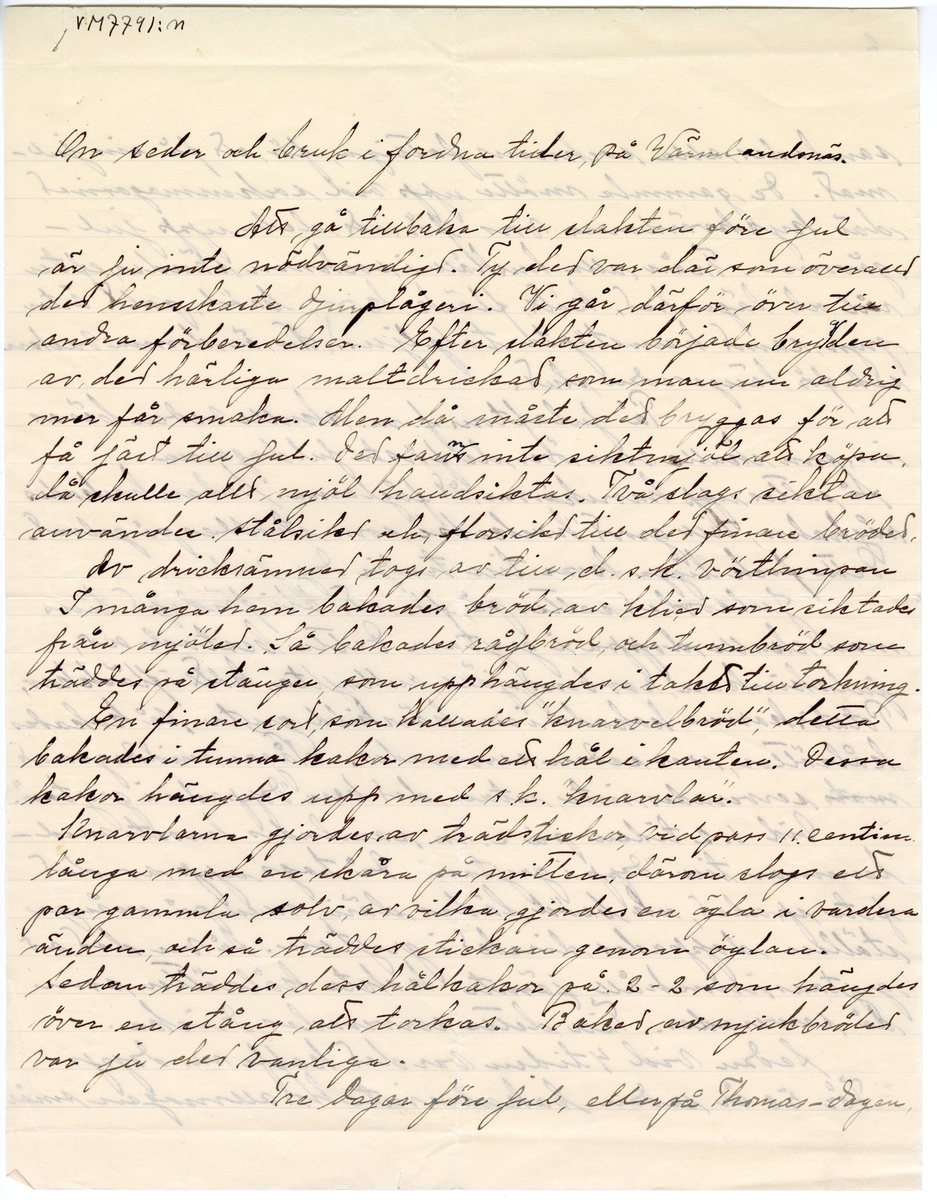 VM7791:11
Om seder och bruk i fordna tider, på Värmlandsnäs.
Att gå tillbaka till slakten före Jul
är ju inte nödvändigt. Ty det var där som överallt
det hemskaste djurplågeri. Vi går därför över till
andra förberedelser. Efter slakten började brygden
av det härliga maltdrickat, som man nu aldrig
mer får smaka. Men då måste det bryggas för att
få jäst till Jul. Det fanns inte siktmjöl att köpa,
då skulle allt mjöl handsiktas. Två slags siktar
användes. stålsikt och florsikt till det finare brödet.
Av dricksämnet togs av till d. s. k. vörtlimpan
I många hem bakades bröd av kliet som siktades
från mjölet. Så bakades rågbröd och tunnbröd som
träddes på stänger, som upphängdes i taket till torkning.
En finare sort, som kallades "knarvelbröd", detta
bakades i tunna kakor med ett hål i kanten. Dessa
kakor hängdes upp med s k. "knarvlar".
Knarvlarna gjordes av trädstickor, vid pass 11 centim.
långa med en skåra på mitten, därom slogs ett
par gammla solv, av vilka gjordes en ögla i vardera
änden, och så träddes stickan genom öglan.
Sedan träddes dess hålkakor på. 2-2 som hängdes
över en stång att torkas. Baket av mjukbrödet
var ju det vanliga.
Tre dagar före Jul, eller på Thomas-dagen,